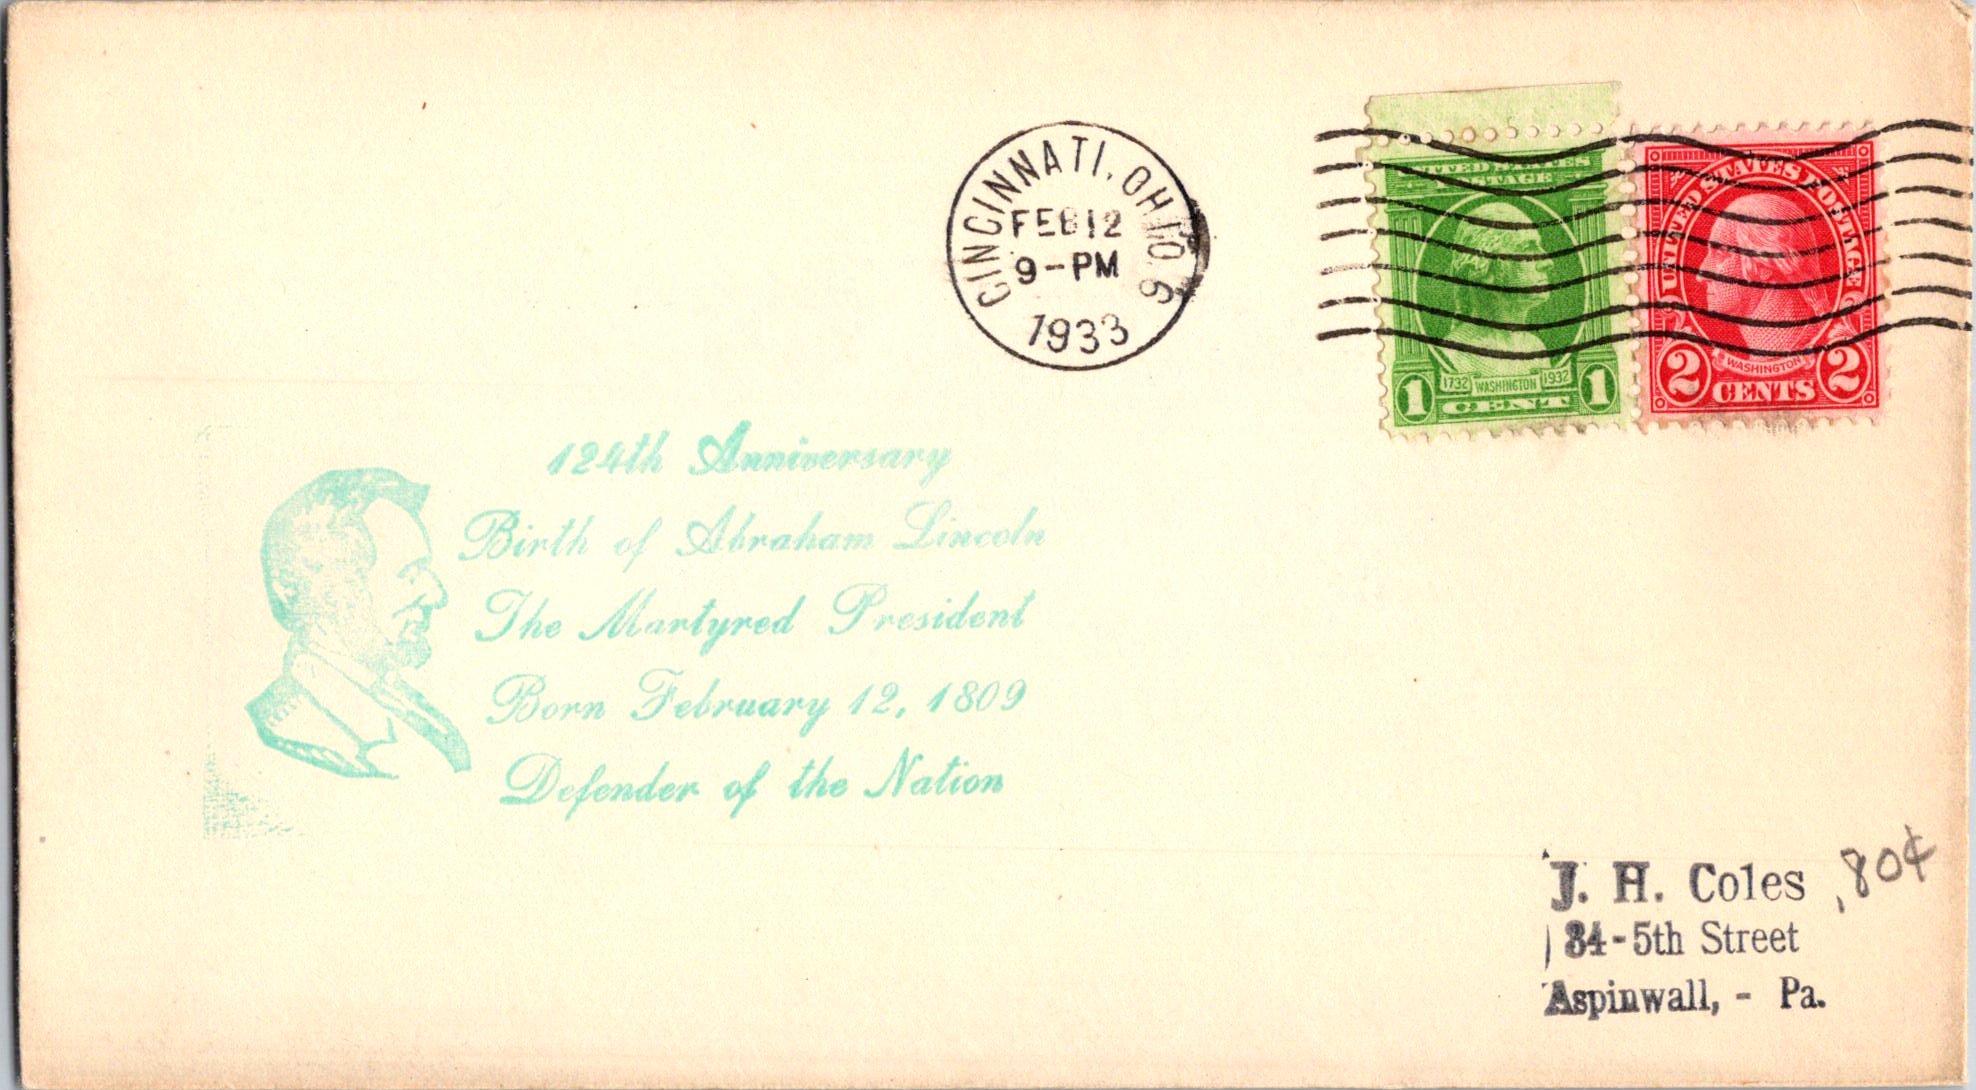 CINCINNATI, OHIO. 6
FEB 12
9-PM
1933
UNITED STATES
POSTAGE
1732 WASHINGTON 1932
1 CENT 1
UNITED STATES POSTAGE
WASHINGTON
2 CENTS 2
124th Anniversary
Birth of Abraham Lincoln
The Martyred President
Born February 12, 1809
Defender of the Nation
J. H. Coles
.80¢
84-5th Street
Aspinwall, - Pa.